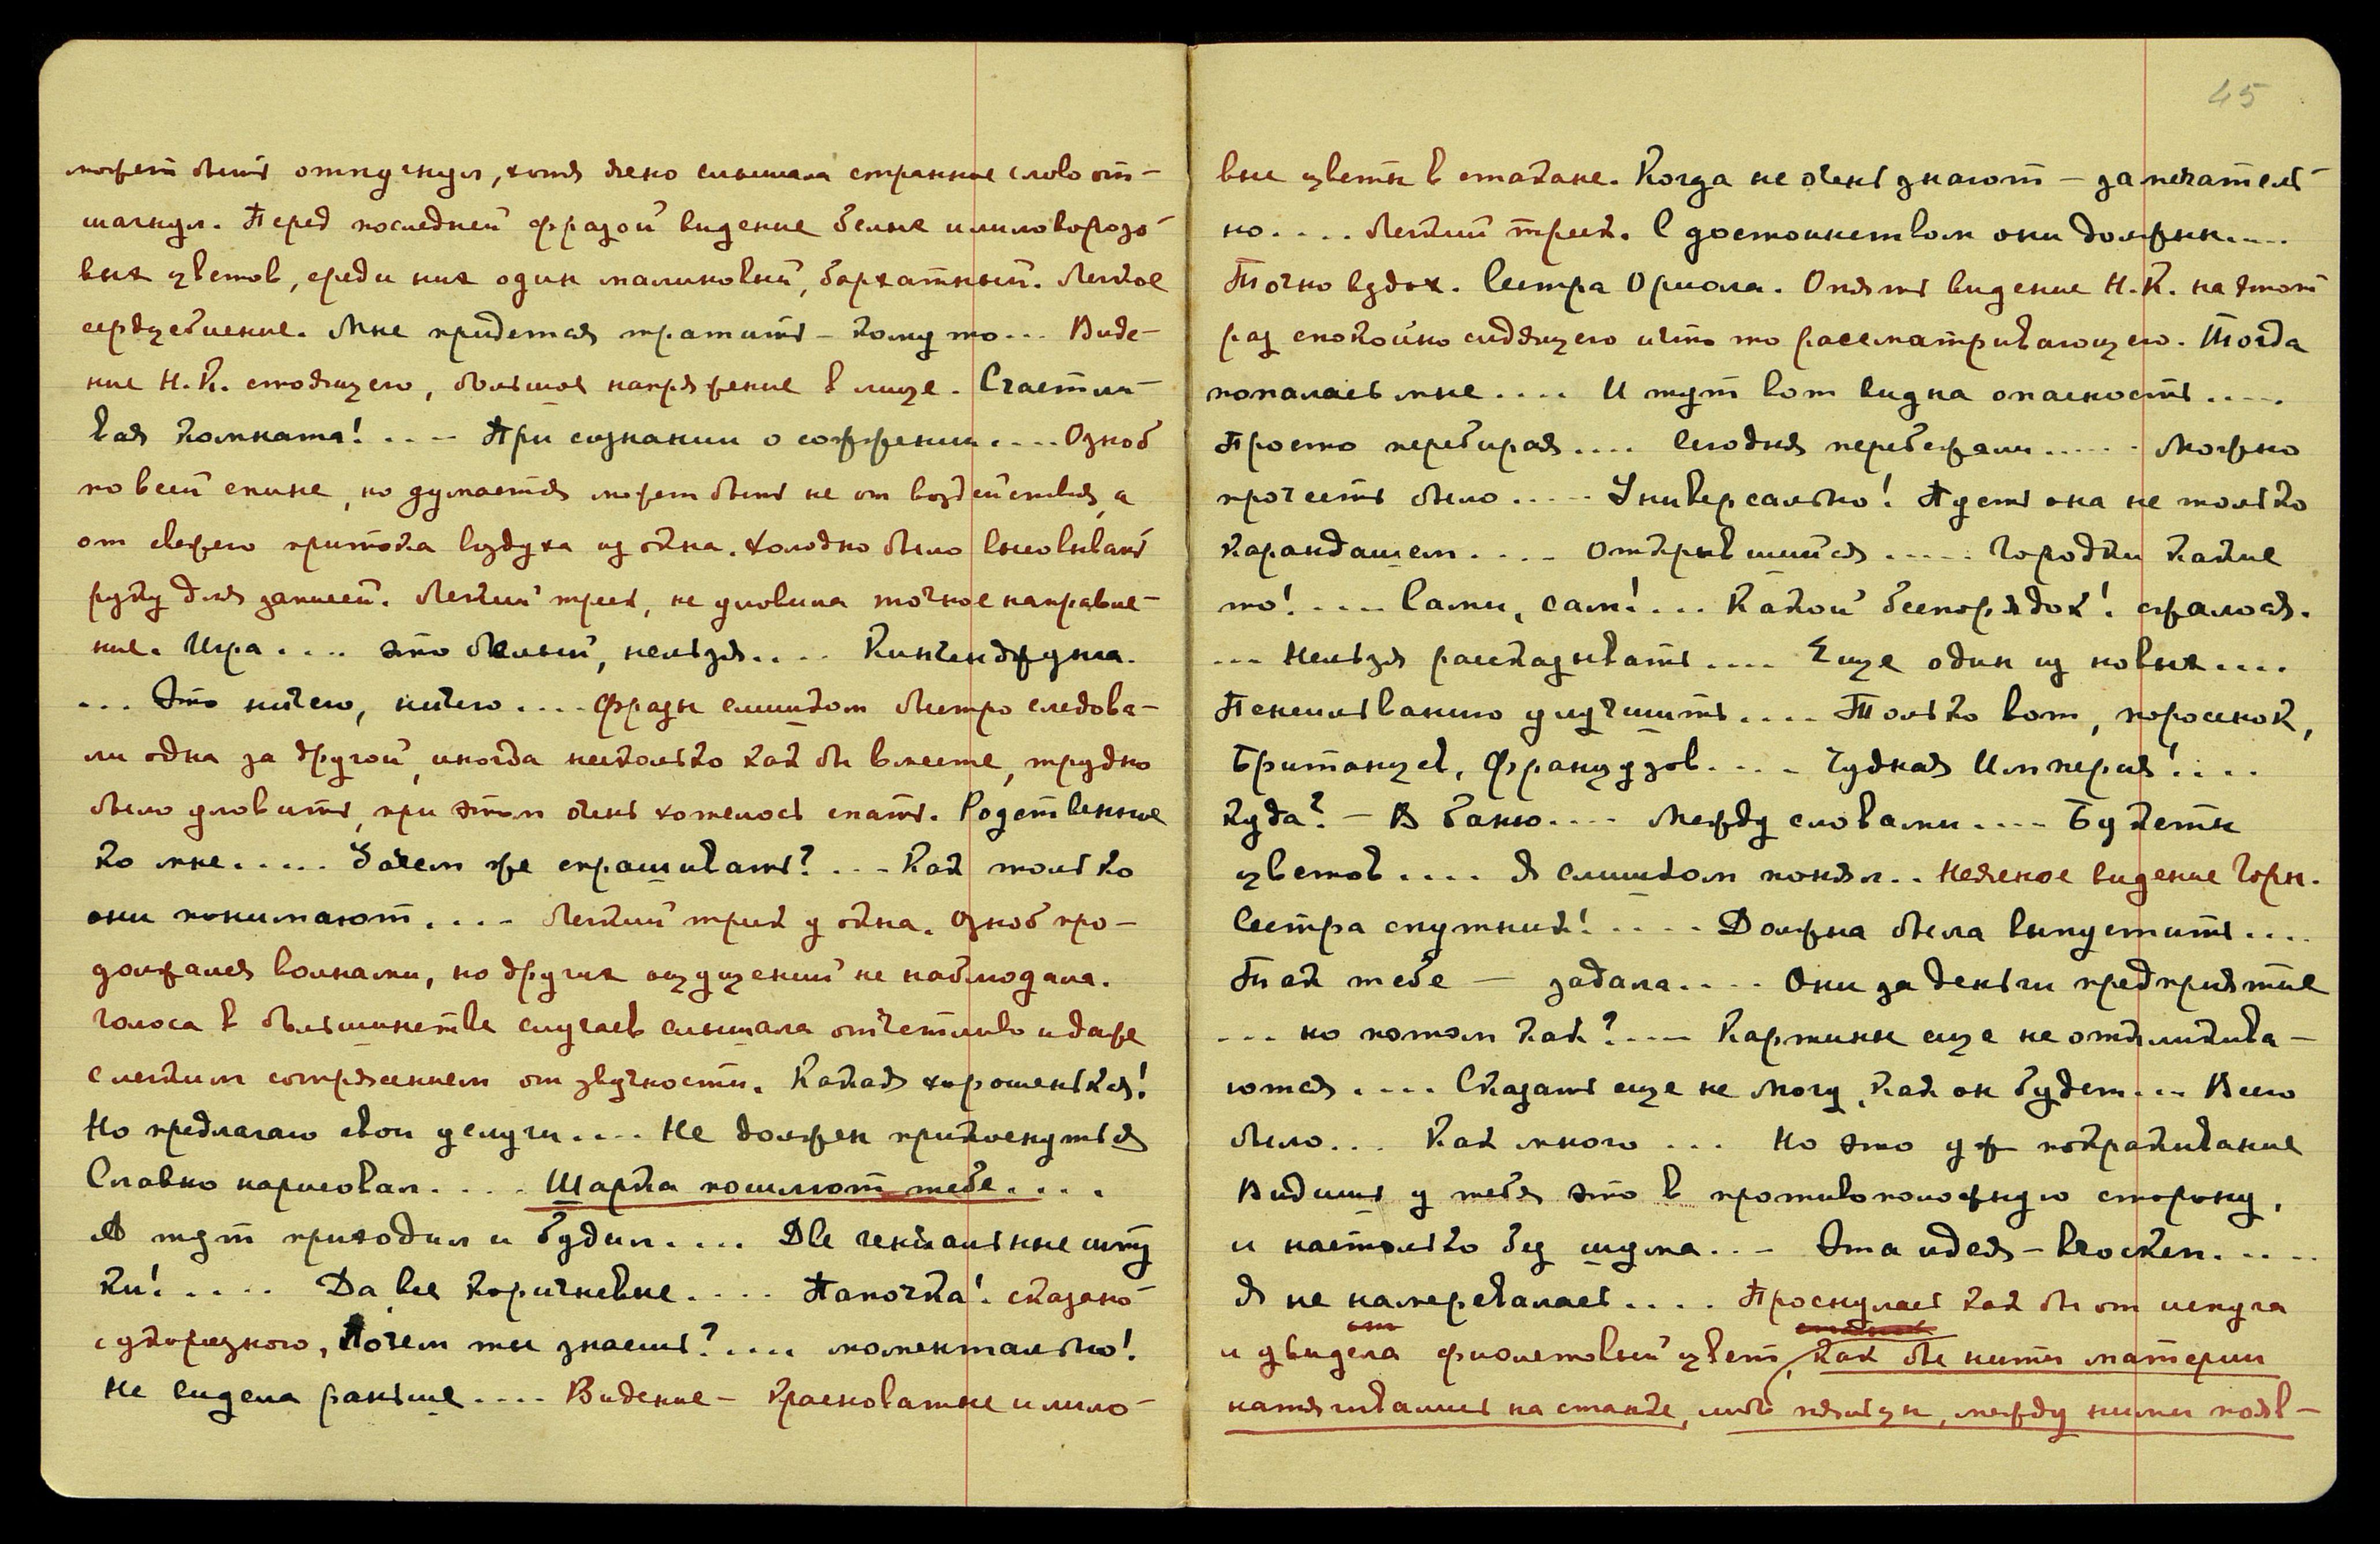 может быть отпугнул, хотя ясно слышала странное слово от-
шагнул. Перед последней фразой видение белые и лиловорозо-
вых цветов, среди них один малиновый, бархатный. Легкое
сердцебиение. Мне придется тратить – кому то... Виде-
ние Н.К. стоящего, большое напряжение в лице. Счастли-
вая комната! .... При сознании о сожжении .... Озноб
по всей спине, но думается может быть не от воздействия, а
от свежего притока воздуха из окна. Холодно было высовывать
руку для записей. Легкий треск, не уловила точное направле-
ние. Игра .... это белый, нельзя.... Кинченджунга.
... Это ничего, ничего .... Фразы слишком быстро следова-
ли одна за другой, иногда несколько как бы вместе, трудно
было уловить, при этом очень хотелось спать. Родственные
ко мне..... Зачем же спрашивать? ... Как только
они понимают.... Легкий треск у окна. Озноб про-
должался волнами, но других ощущений не наблюдала.
Голоса в большинстве случаев слышала отчетливо и даже
с легким сотрясением от звучности. Какая хорошенькая!
Но предлагаю свои услуги.... Не должен прикоснуться
Славно нарисовал.... Шарка пошлют тебе....
А тут приходил и будил.... Две гениальные шту
ки! .... Да все коричневые.... Папочка! сказано
с укоризною, Почем ты знаешь? .... моментально!
Не видела раньше.... Видение – Красноватые и лило-
45
вые цветы в стакане. Когда не очень знают – замечатель-
но.... Легкий треск. С достоинством они должны....
Точно вздох. Сестра Ориола. Опять видение Н.К. на этот
раз спокойно сидящего и что то рассматривающего. Тогда
попалась мне.... И тут вот видна опасность.....
Просто перебирая.... Сегодня перебежали..... Можно
прочесть было..... Универсально! Пусть она не только
карандашем.... Открывшийся..... Городки какие
то! .... Сами, сам! ... Какой беспорядок! сжалося.
... Нельзя рассказывать.... Еще один из новых....
Пенсильванию улучшить.... Только вот, поросенок,
Британцев, Французов.... Чудная Империя! ....
Куда? – В баню.... Между словами.... Букеты
цветов.... Я слишком понял.. Неясное видение Горы.
Сестра спутник! ..... Должна была выпустить....
Так тебе – задала.... Они за деньги предприятие
... но потом как? .... Картины еще не откликива-
ются.... Сказать еще не могу, как он будет... Всего
было... Как много ... Но это уж покрапивание
Видишь у тебя это в противоположную сторону,
и настолько без шума... Эта идея – восклен.....
Я не намеревалась.... Проснулась как бы от испуга
и увидела фиолетовый цвет, как бы нити материи
натягивались на станке, либо пяльцы, между ними появ-